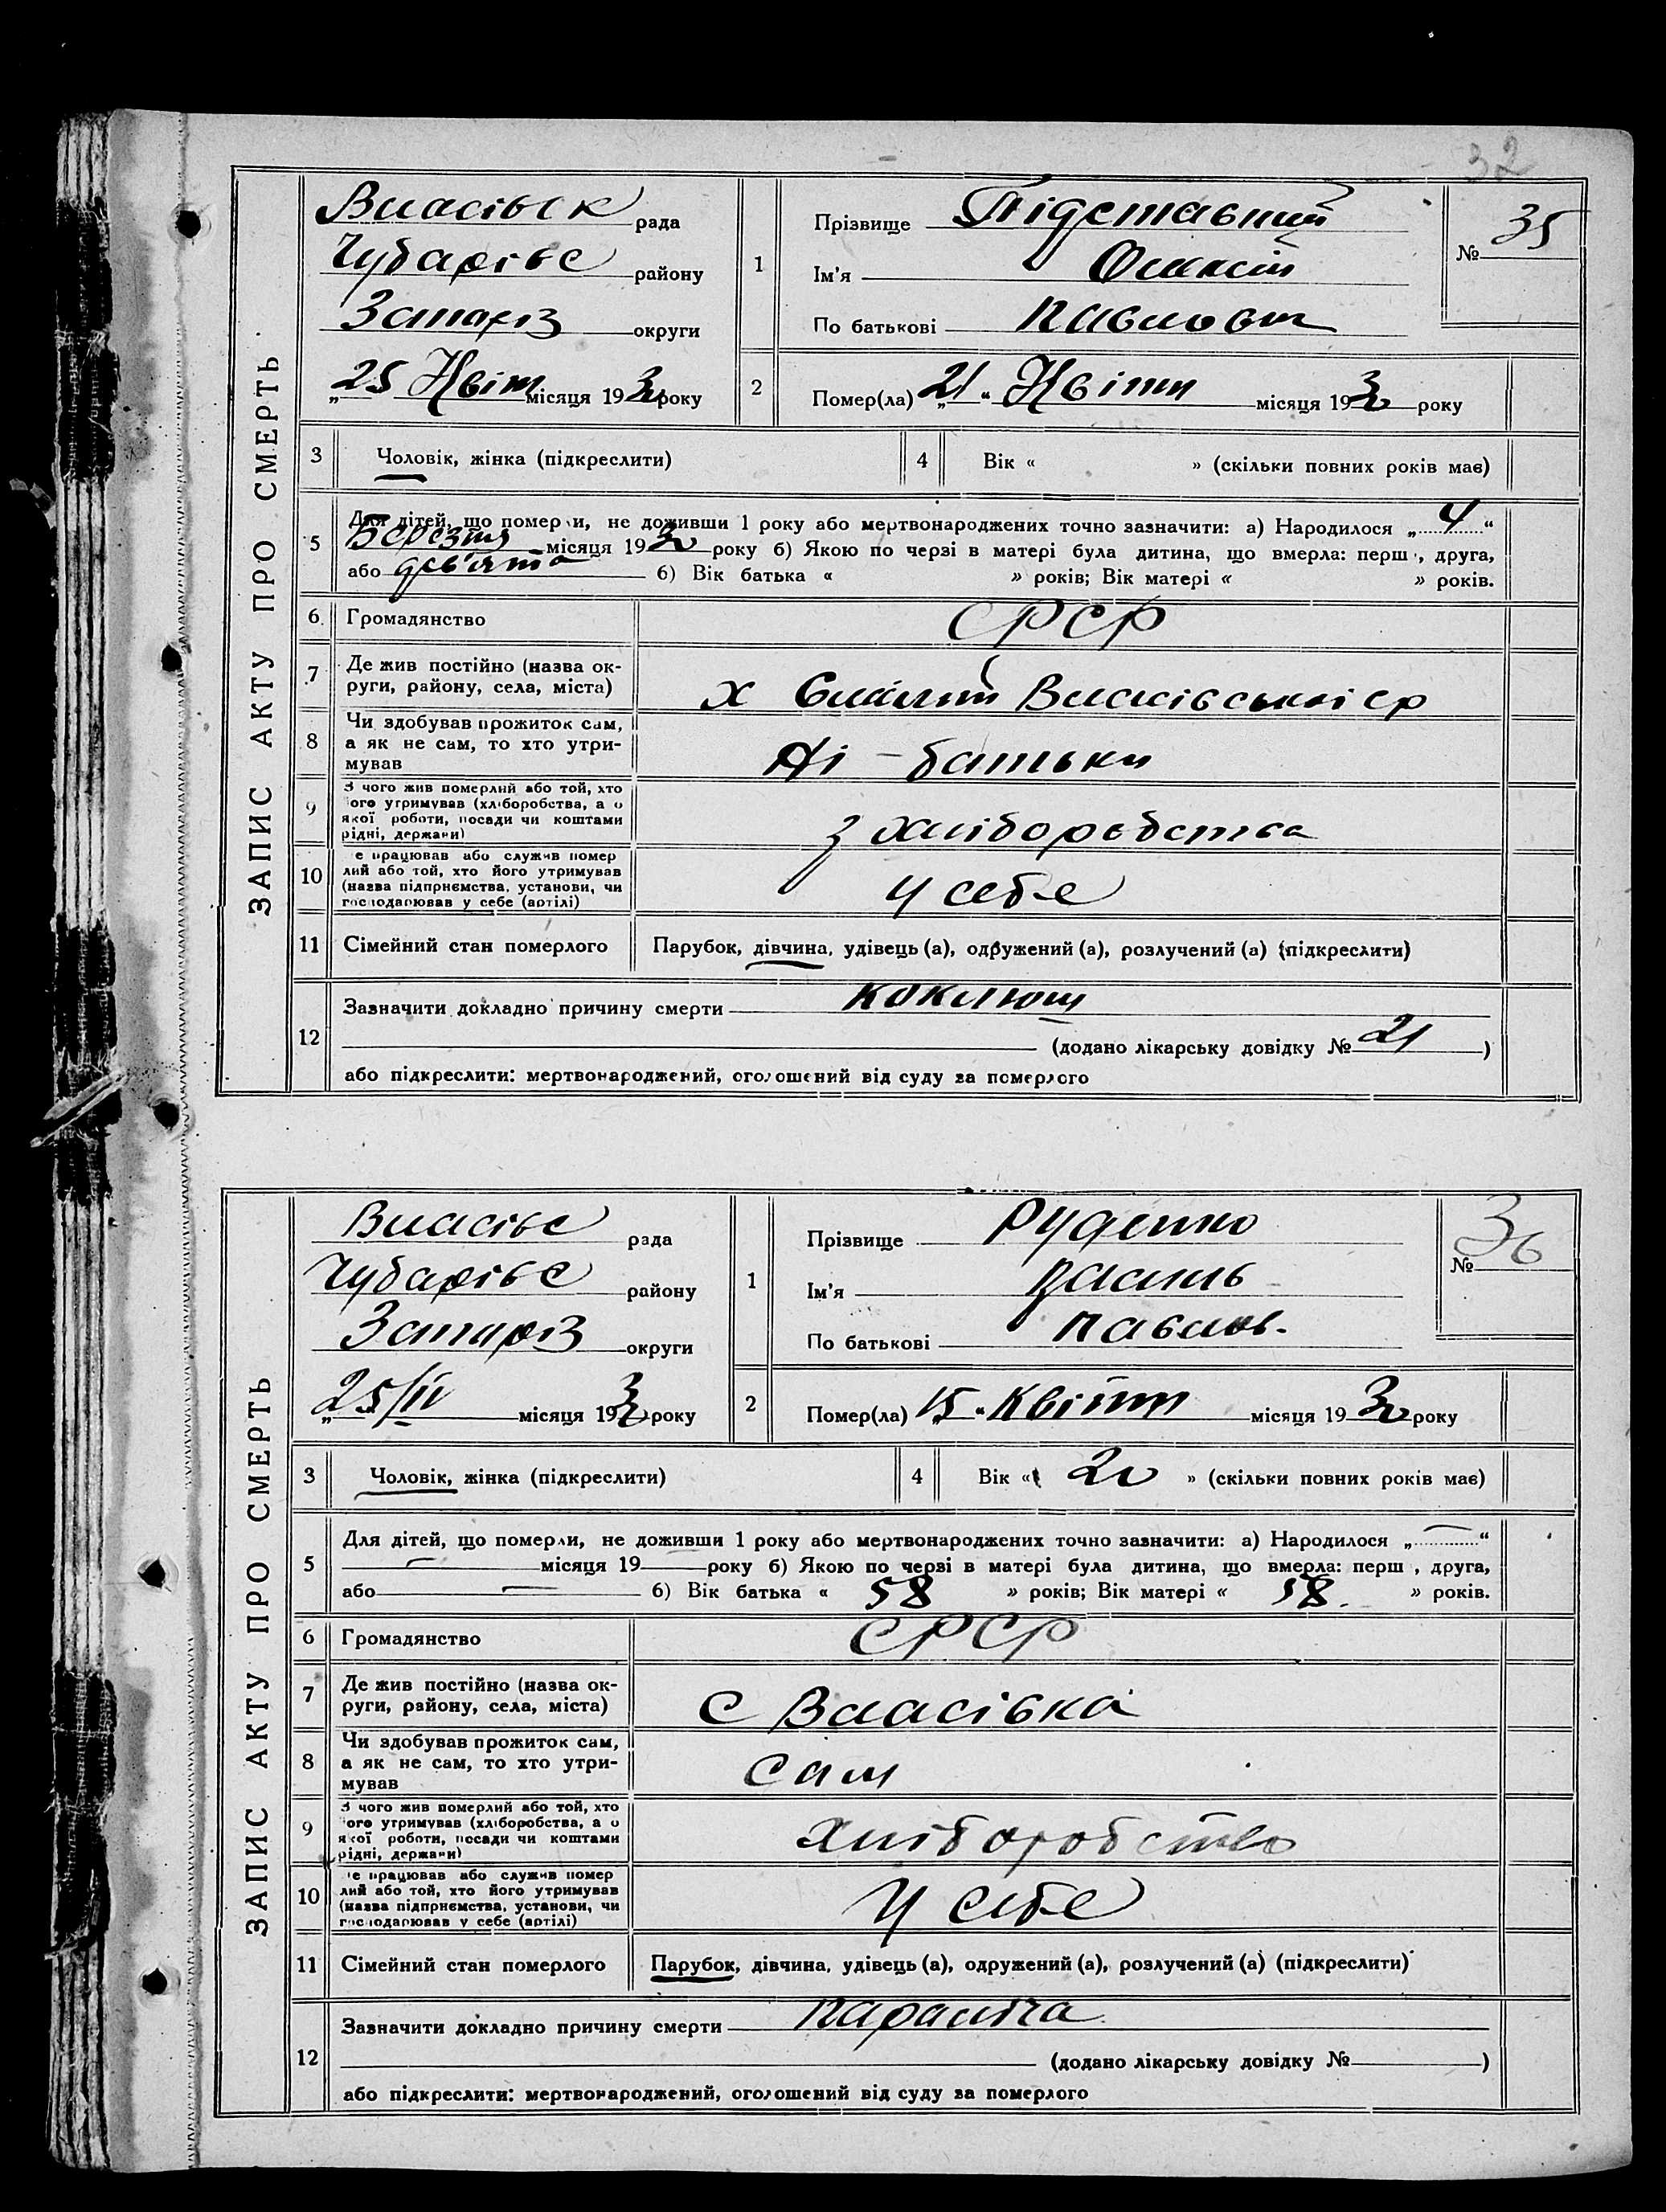 32
ЗАПИС АКТУ ПРО СМЕРТЬ
Власівск рада
Чубарівс району
Запоріз округи
„25 Квітн місяця 1930 року
1
Прізвище Підставний
Ім'я
По батькові Павлович
№ 35
2 Помер(ла) „21“ Квітня місяця 1930 року
3 Чоловік, жінка (підкреслити)
4 Вік « » (скільки повних років має)
5 Для дітей, що померли, не доживши 1 року або мертвонароджених точно зазначити: а) Народилося „4“
Березня місяця 1930 року б) Якою по черзі в матері була дитина, що вмерла: перш , друга,
або дев'ята б) Вік батька « » років; Вік матері « » років.
6. Громадянство СРСР
7 Де жив постійно (назва ок-
руги, району, села, міста) х Власівської ср
8 Чи здобував прожиток сам,
а як не сам, то хто утри-
мував Ні – батьки
9 З чого жив померлий або той, хто
ого утримував (хліборобства, а о
якої роботи, посади чи коштами
рідні, держави) з хліборобства
10 е працював або служив помер
лий або той, хто його утримував
(назва підприємства, установи, чи
господарював у себе (артілі) У себе
11 Сімейний стан померлого Парубок, дівчина, удівець (а), одружений (а), розлучений (а) (підкреслити)
12 Зазначити докладно причину смерти коклюш
(додано лікарську довідку № 21 )
або підкреслити: мертвонароджений, оголошений від суду за померлого
ЗАПИС АКТУ ПРО СМЕРТЬ
Власівс рада
Чубарівс району
Запоріз округи
„25/IV місяця 1930 року
1
Прізвище Руденко
Ім'я Василь
По батькові Павлов.
№ 36
2 Помер(ла) „15“ Квітня місяця 1930 року
3 Чоловік, жінка (підкреслити)
4 Вік « 20 » (скільки повних років має)
5 Для дітей, що померли, не доживши 1 року або мертвонароджених точно зазначити: а) Народилося „—“
— місяця 19 року б) Якою по черзі в матері була дитина, що вмерла: перш , друга,
або — б) Вік батька « 58 » років; Вік матері « 58. » років.
6 Громадянство СРСР
7 Де жив постійно (назва ок-
руги, району, села, міста) С Власівка
8 Чи здобував прожиток сам,
а як не сам, то хто утри-
мував Сам
9 З чого жив померлий або той, хто
ого утримував (хліборобства, а о
якої роботи, посади чи коштами
рідні, держави) Хліборобство
10 е працював або служив помер
лий або той, хто його утримував
(назва підприємства, установи, чи
господарював у себе (артілі) У себе
11 Сімейний стан померлого Парубок, дівчина, удівець (а), одружений (а), розлучений (а) (підкреслити)
12 Зазначити докладно причину смерти
(додано лікарську довідку № )
або підкреслити: мертвонароджений, оголошений від суду за померлого